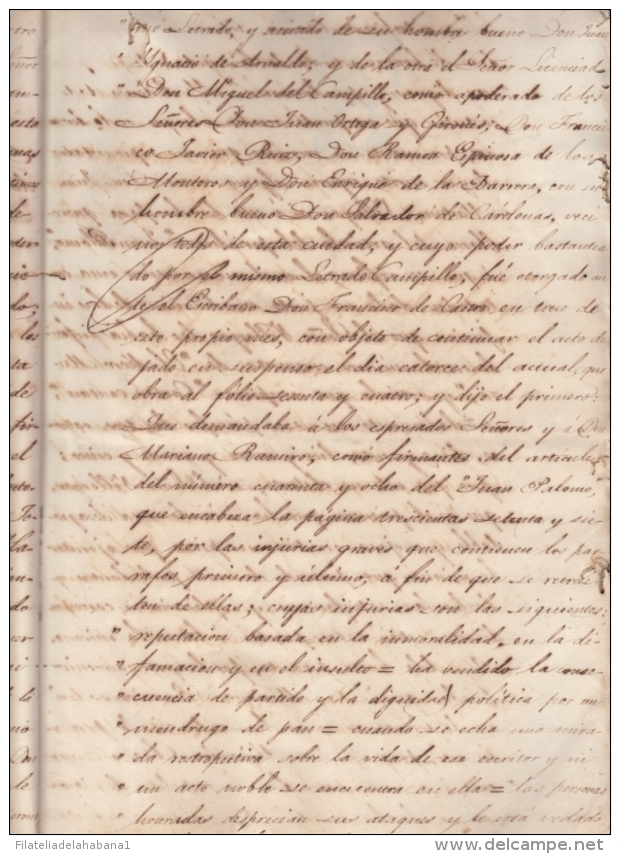 Letrado, y asistido de su hombre bueno Don Juan
Ygnacio de Arnaldo; y de la otra el Señor Licenciad
Don Miguel del Campillo, como apoderado de los
Señores Don Juan Ortega y Gironés, Don Francis
co Javier Ruiz, Don Ramon Espinosa de los
Monteros y Don Enrique de la Barrera, con su
hombre bueno Don Salvador de Cárdenas, veci
nos todos de esta ciudad; y cuyo poder bastantea
do por el mismo Letrado Campillo, fué otorgado an
te el Escribano Don Francisco de Castro en tres de
este propio mes, con objeto de continuar el acto de
jado en suspenso el dia catorce del actual, que
obra al folio sesenta y cuatro; y dijo el primero:
Que demandaba á los espresados Señores y á Don
Mariano Ramiro, como firmantes del artículo
del número cuarenta y ocho del "Juan Palomo,
que encabeza la página trescientas setenta y sie
te, por las injurias graves que contienen los par
rafos primero y último, a fin de que se retrac
ten de ellas; cuyas injurias son las siguientes:
" reputacion basada en la inmoralidad, en la di
" famacion y en el insulto = ha vendido la conse
" cuencia de partido y la dignidad política por un
" mendrugo de pan = cuando se echa una mira
" da retrospectiva sobre la vida de ese escritor y ni
" un acto noble se encuentra en ella = las personas
" honradas desprecian sus ataques y le está vedado
Filateliadelahabana1
www.delcampe.net